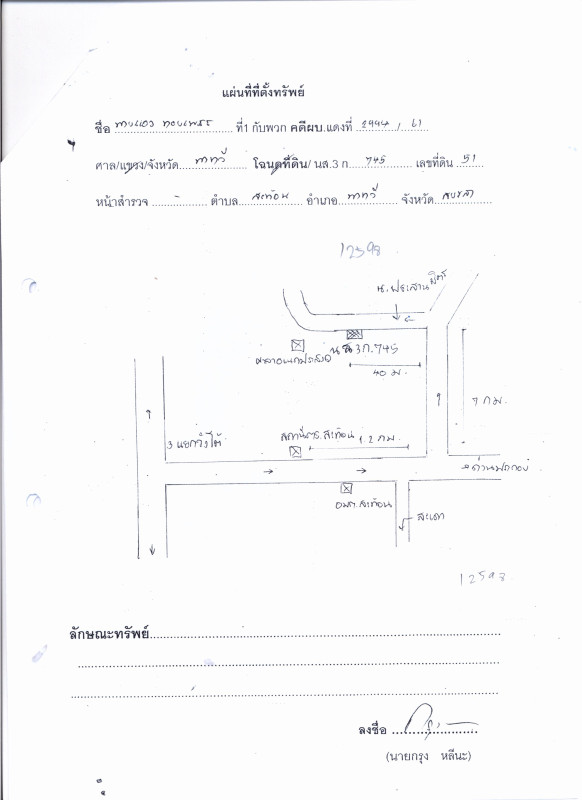 แผ่นที่ที่ตั้งทรัพย์
ชื่อ ที่1 กับพวก คดีผบ.แดงที่ 2994 / 61
ศาล/แขวง/จังหวัด นาทวี โฉนดที่ดิน/ นส.3 ก 745 เลขที่ดิน 51
หน้าสำรวจ - ตำบล สะท้อน อำเภอ นาทวี จังหวัด สงขลา
12598
น.ประสานมิตร
นส 3ก.745
ศาลาอเนกประสงค์
40 ม.
7 กม.
สถานีตร.สะท้อน
1.2 กม.
3 แยกวังโต้
อบต.สะท้อน
สะเดา
12598
ลักษณะทรัพย์
ลงชื่อ
(นายกรุง หลีนะ)